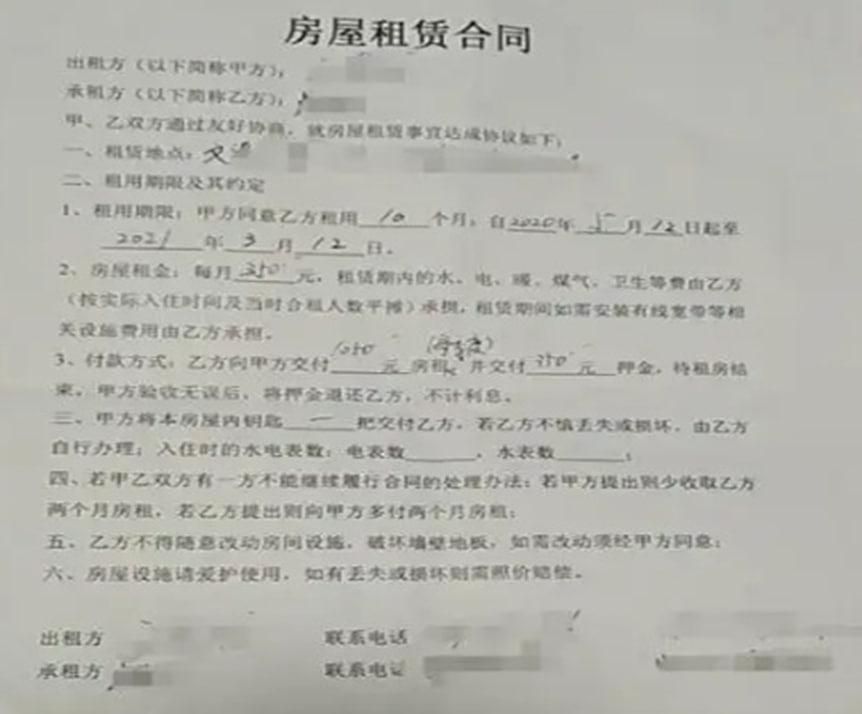 房屋租赁合同
出租方（以下简称甲方）：
承租方（以下简称乙方）：
甲、乙双方通过友好协商，就房屋租赁事宜达成协议如下：
一、租赁地点：
二、租用期限及其约定
1、租用期限：甲方同意乙方租用 10 个月，自2020年 5 月 12 日起至
2021 年 3 月 12 日。
2、房屋租金：每月 350 元，租赁期内的水、电、暖、煤气、卫生等费由乙方
（按实际入住时间及当时合租人数平摊）承担，租赁期间如需安装有线宽带等相
关设施费用由乙方承担。
3、付款方式：乙方向甲方交付 1050 元 房租（每季度）并交付 350 元 押金，待租房结
束，甲方验收无误后，将押金退还乙方，不计利息。
三、甲方将本房屋内钥匙 一 把交付乙方，若乙方不慎丢失或损坏，由乙方
自行办理；入住时的水电表数：电表数______，水表数______；
四、若甲乙双方有一方不能继续履行合同的处理办法：若甲方提出则少收取乙方
两个月房租，若乙方提出则向甲方多付两个月房租；
五、乙方不得随意改动房间设施，破坏墙壁地板，如需改动须经甲方同意；
六、房屋设施请爱护使用，如有丢失或损坏则需照价赔偿。
出租方 联系电话
承租方 联系电话